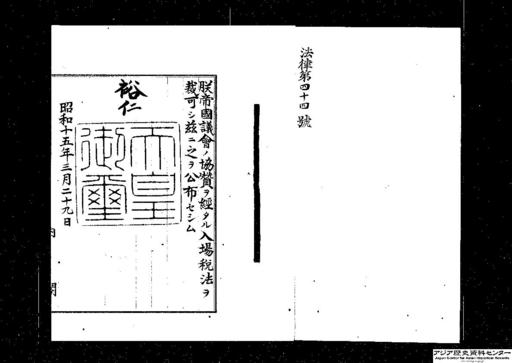 法律第四十四號
朕帝國議會ノ協贊ヲ經タル入場稅法ヲ
裁可シ茲ニ之ヲ公布セシム
裕仁
天皇御璽
昭和十五年三月二十九日
内閣
アジア歴史資料センター
Japan Center for Asian Historical Records